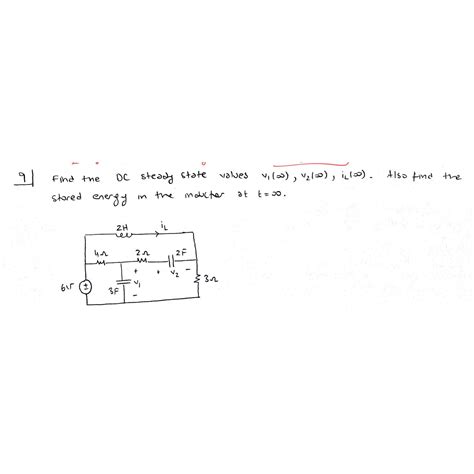 9
Find the DC steady state values v₁(∞), v₂(∞), i_L(∞). Also find the
stored energy in the inductor at t=∞.
2H i_L
4Ω 2Ω 2F
+ + v₂ -
6V 3F v₁ 3Ω
-